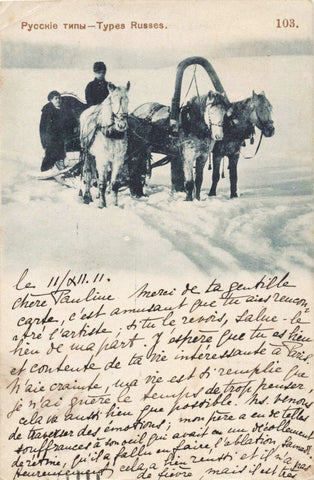 Русскіе типы—Types Russes.
103.
le 11/XII.11.
Chère Pauline Merci de ta gentille
carte, c'est amusant que tu aies rencon-
tré l'artiste; si tu le revois, salue-le
bien de ma part. J'espère que tu es bien
et contente de ta vie intéressante à
N'aie crainte, ma vie est si remplie que
je n'ai guère le temps de trop penser
cela va aussi bien que possible. Ns venons
de traverser des émotions; mon père a eu de telles
souffrances à son œil qui avait eu un décollement
de rétine, qu'il a fallu en faire l'ablation. Samedi
Heureusement cela a bien réussi et il n'a pas
de fièvre mais il est très